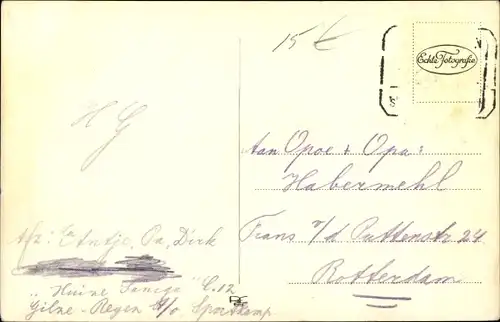 15 €
Echte Fotografie
H G
Aan Opoe + Opa:
Habermehl
Frans v/d Puttenstr 24
Rotterdam
Afz: Antje, Pa, Dirk
C.12
Gilze-Regen Sportkamp